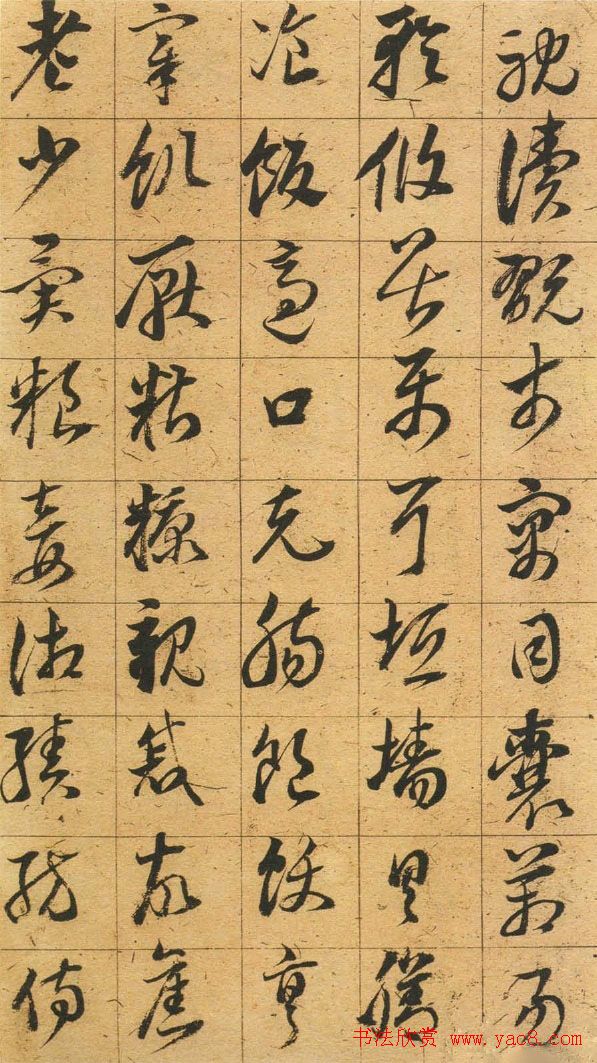 耽讀翫市寓目囊箱易
輶攸畏屬耳垣墻具膳
飡飯適口充腸飽飫烹
宰飢厭糟糠親戚故舊
老少異糧妾御績紡侍
书法欣赏 www.yac8.com